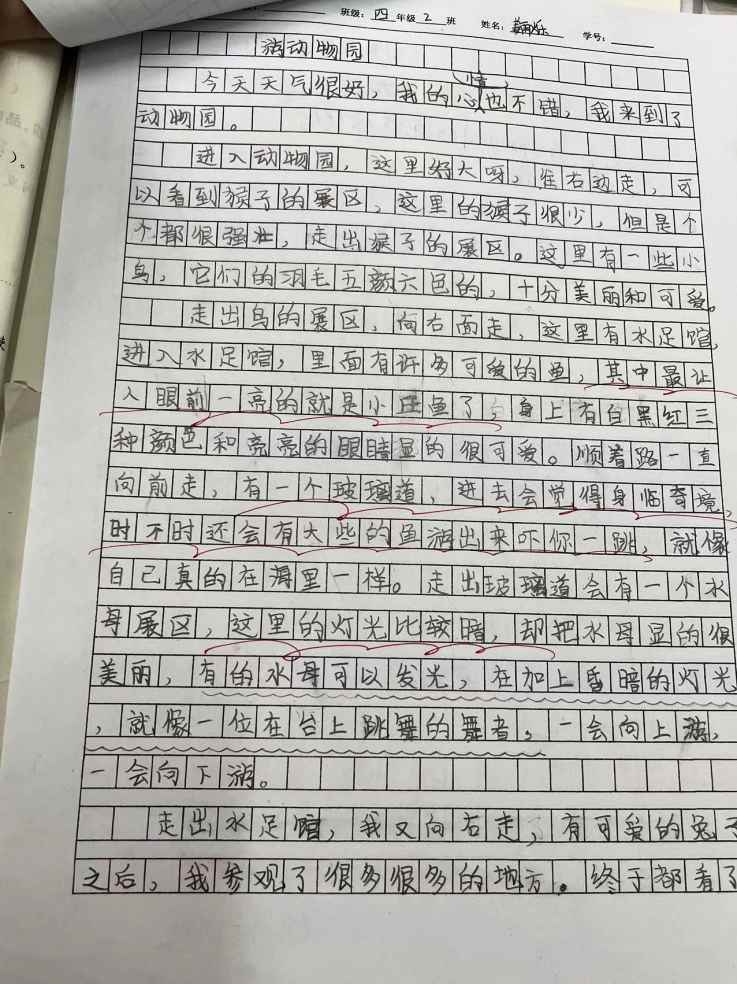 班级：四年级2班 姓名： 学号：
游动物园
今天天气很好，我的心情也不错，我来到了
动物园。
进入动物园，这里好大呀，往右边走，可
以看到猴子的展区，这里的猴子很少，但是个
个都很强壮，走出猴子的展区。这里有一些小
鸟，它们的羽毛五颜六色的，十分美丽和可爱。
走出鸟的展区，向右面走，这里有水足馆，
进入水足馆，里面有许多可爱的鱼，其中最让
人眼前一亮的就是小丑鱼了，身上有白黑红三
种颜色和亮亮的眼睛显的很可爱。顺着路一直
向前走，有一个玻璃道，进去会觉得身临奇境，
时不时还会有大些的鱼游出来吓你一跳，就像
自己真的在海里一样。走出玻璃道会有一个水
母展区，这里的灯光比较暗，却把水母显的很
美丽，有的水母可以发光，在加上昏暗的灯光
，就像一位在台上跳舞的舞者，一会向上游，
一会向下游。
走出水足馆，我又向右走，有可爱的兔子
之后，我参观了很多很多的地方。终于都看了